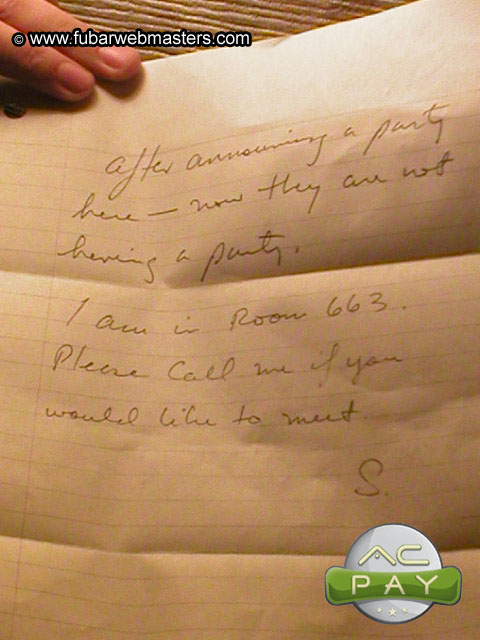 © www.fubarwebmasters.com
after announcing a party
here — now they are not
having a party.
I am in Room 663.
Please Call me if you
would like to meet
S.
AC
PAY